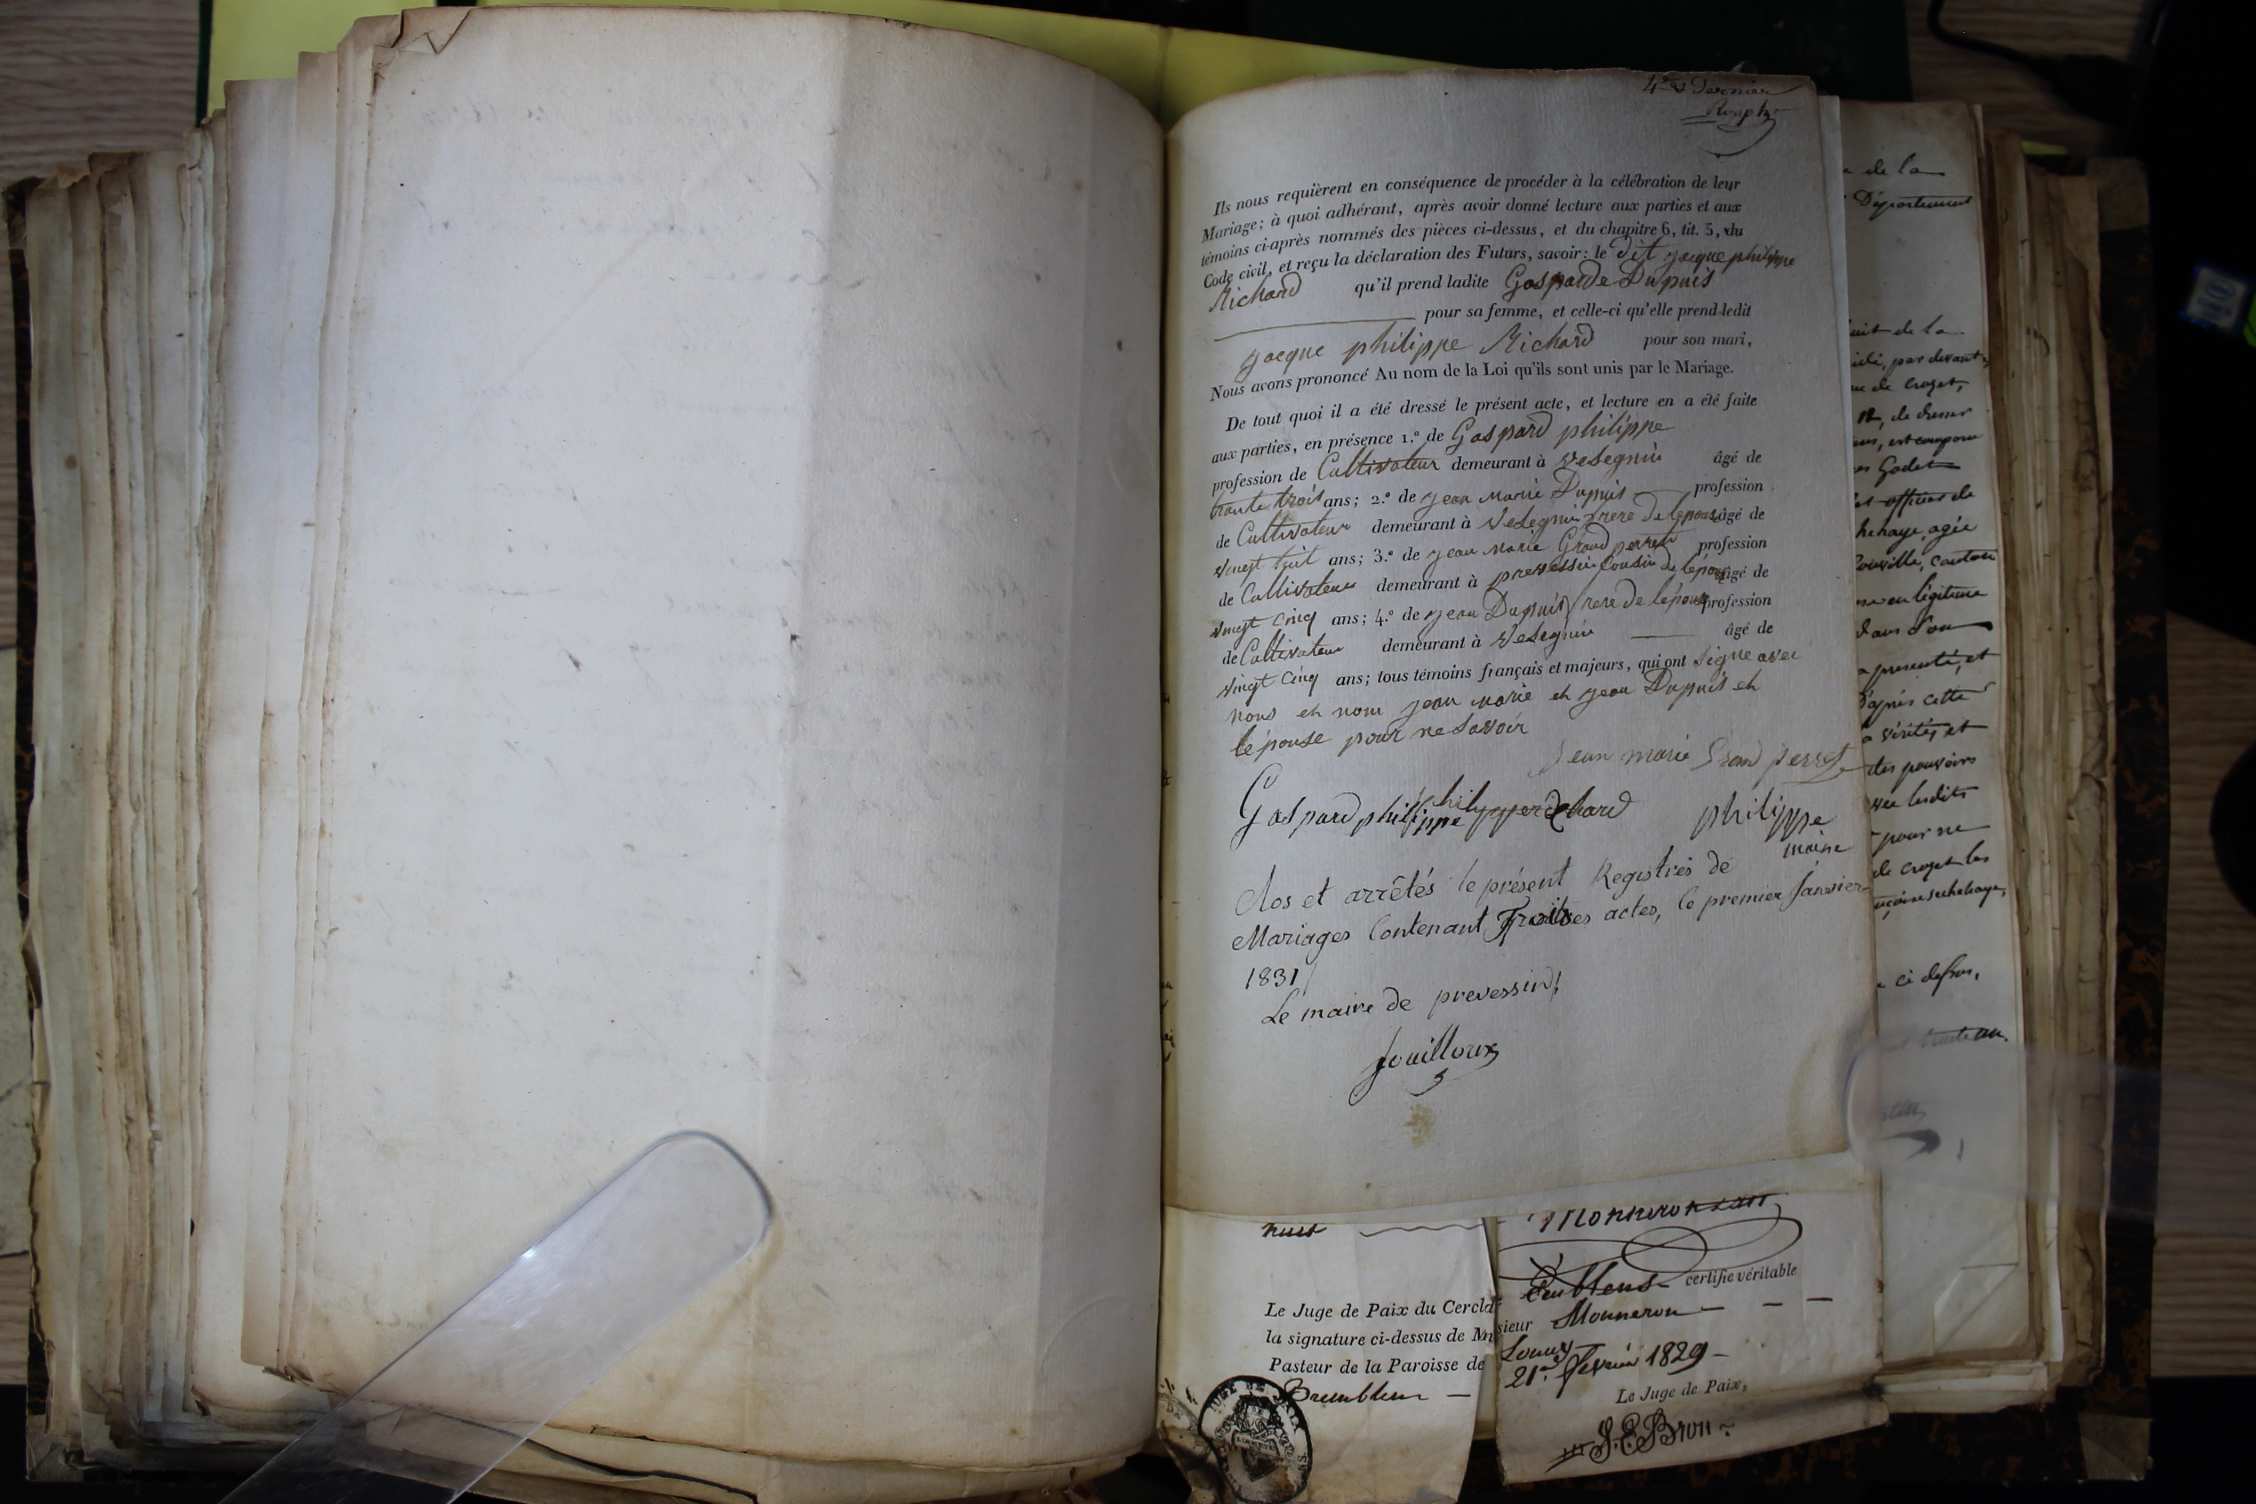 4e et Dernier
Ils nous requièrent en conséquence de procéder à la célébration de leur
Mariage; à quoi adhérant, après avoir donné lecture aux parties et aux
témoins ci-après nommés des pièces ci-dessus, et du chapitre 6, tit. 5, du
Code civil, et reçu la déclaration des Futurs, savoir: le dit jacque philippe
Richard qu'il prend ladite Gasparde Dupuis
pour sa femme, et celle-ci qu'elle prend ledit
jacque philippe Richard pour son mari,
Nous avons prononcé Au nom de la Loi qu'ils sont unis par le Mariage.
De tout quoi il a été dressé le présent acte, et lecture en a été faite
aux parties, en présence 1.° de Gaspard philippe
profession de Cultivateur demeurant à vesegnin âgé de
trante trois ans; 2.° de jean marie Dupuis profession
de Cultivateur demeurant à vesegnin frere de lepouse âgé de
vingt huit ans; 3.° de jean marie Grand perret profession
de Cultivateur demeurant à prevessin Cousin de lépouse âgé de
vingt cinq ans; 4.° de jean Dupuis frere de lépouse profession
de Cultivateur demeurant à vesegnin âgé de
vingt cinq ans; tous témoins français et majeurs, qui ont signe avec
nous et nom jean marie et jean Dupuis et
lépouse pour ne savoir
Jean marie Grand perret
Gaspard philippe philipperichard philippe
maire
Clos et arrêtés le présent Registres de
Mariages Contenant Troits actes, le premier Janvier
1831
Le maire de prevessin
Jouilloux
huit
Monneron
certifie véritable
Le Juge de Paix du Cercle
la signature ci-dessus de Monsieur Monneron
Pasteur de la Paroisse de
21e. fevrier 1829
Le Juge de Paix,
de la
Département
uit de la
par devant
de crozet,
12, de dresser
Godet
offices de
agée
canton
en légitime
presenté, et
D'après cette
vérité, et
des pouvoirs
lesdits
pour ne
de crozet les
ci dessus,
JUGE DE PAIX